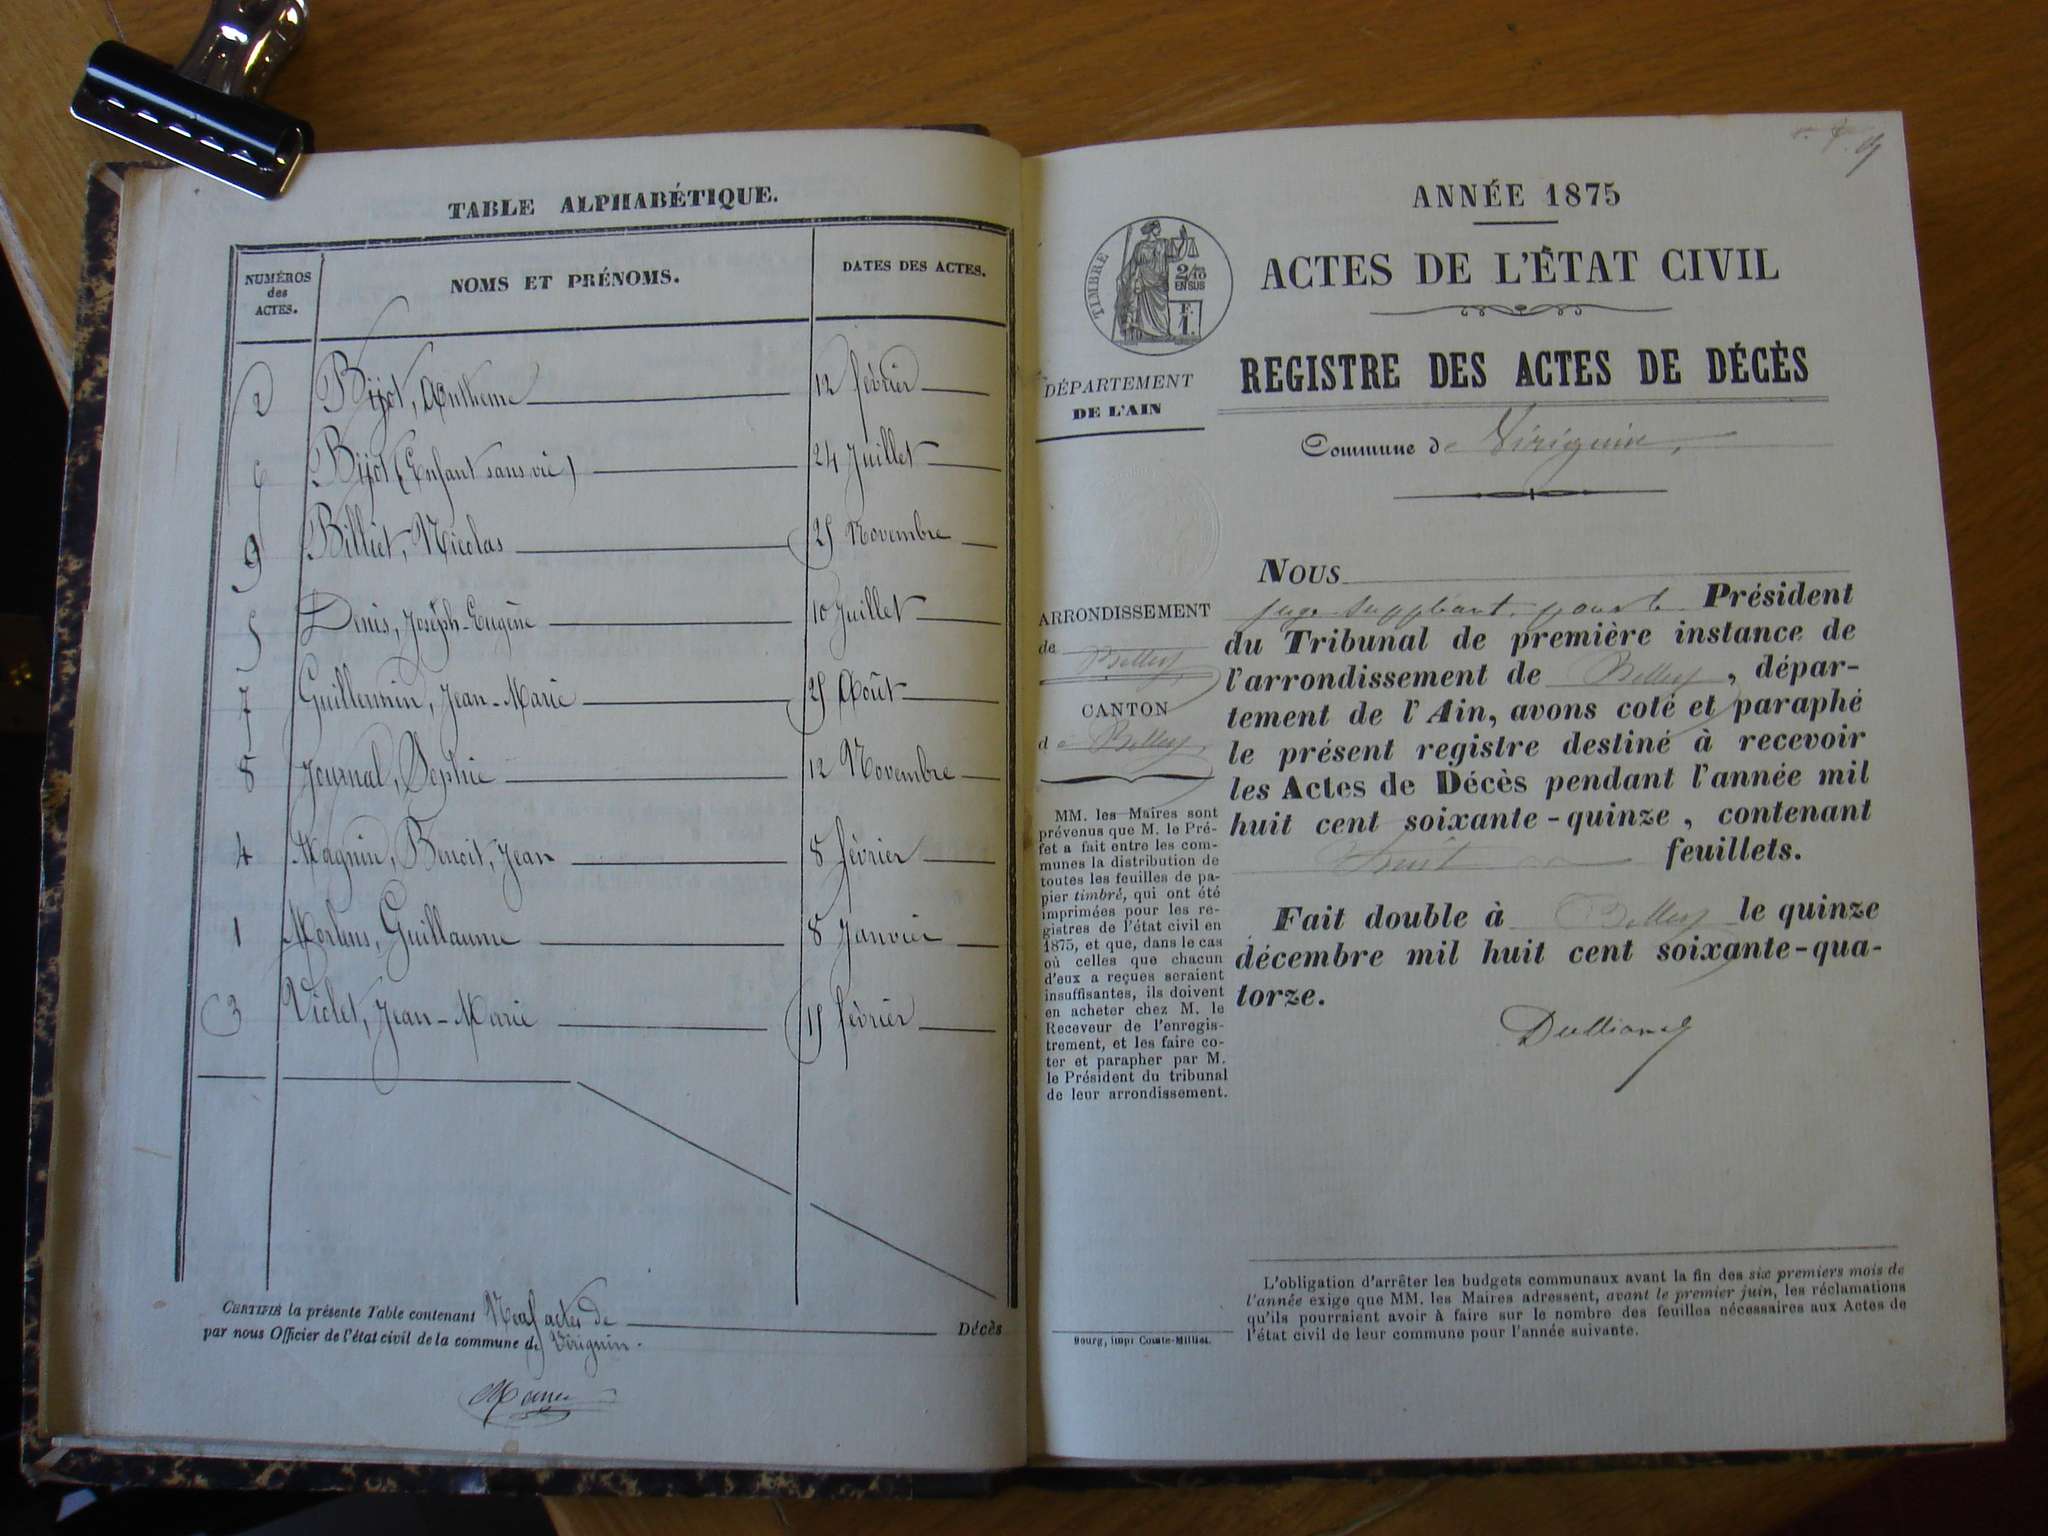 TABLE ALPHABÉTIQUE.
NUMÉROS des ACTES.
NOMS ET PRÉNOMS.
DATES DES ACTES.
2 Bijot, Antheme 12 février
6 Bijot (Enfant sans vie) 24 Juillet
9 Billiet, Nicolas 25 Novembre
5 Denis, Joseph-Eugène 10 Juillet
7 Guillermin, Jean-Marie 25 Août
8 Journal, Sophie 12 Novembre
4 Magnin, Benoit, Jean 8 février
1 Guillaume 8 Janvier
3 Violet, Jean-Marie 15 février
CERTIFIÉ la présente Table contenant Neuf actes de Décès
par nous Officier de l'état civil de la commune de Virignin.
ANNÉE 1875
ACTES DE L'ÉTAT CIVIL
TIMBRE
2/10
EN SUS
F.
1.
REGISTRE DES ACTES DE DÉCÈS
DÉPARTEMENT
DE L'AIN
Commune de Virignin,
ARRONDISSEMENT
de Belley
CANTON
de Belley
MM. les Maires sont
prévenus que M. le Pré-
fet a fait entre les com-
munes la distribution de
toutes les feuilles de pa-
pier timbré, qui ont été
imprimées pour les re-
gistres de l'état civil en
1875, et que, dans le cas
où celles que chacun
d'eux a reçues seraient
insuffisantes, ils doivent
en acheter chez M. le
Receveur de l'enregis-
trement, et les faire co-
ter et parapher par M.
le Président du tribunal
de leur arrondissement.
Bourg, impr Comte-Milliet.
NOUS
juge suppléant, pour le Président
du Tribunal de première instance de
l'arrondissement de Belley, dépar-
tement de l'Ain, avons coté et paraphé
le présent registre destiné à recevoir
les Actes de Décès pendant l'année mil
huit cent soixante-quinze, contenant
huit feuillets.
Fait double à Belley le quinze
décembre mil huit cent soixante-qua-
torze.
L'obligation d'arrêter les budgets communaux avant la fin des six premiers mois de
l'année exige que MM. les Maires adressent, avant le premier juin, les réclamations
qu'ils pourraient avoir à faire sur le nombre des feuilles nécessaires aux Actes de
l'état civil de leur commune pour l'année suivante.